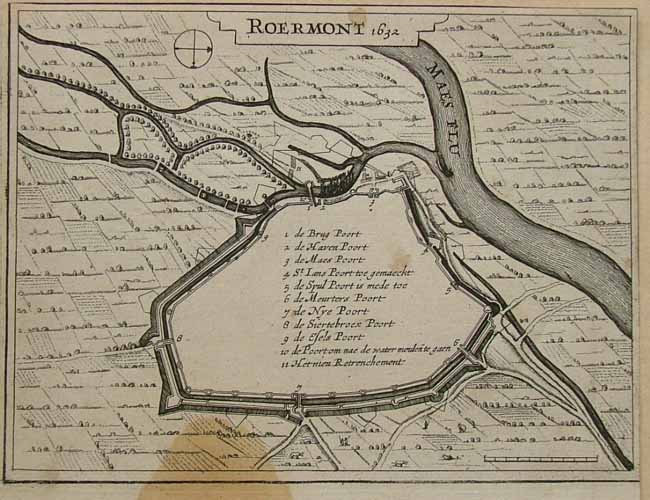 ROERMONT 1632
MAES FLU
1 de Brug Poort
2 de Haven Poort
3 de Maes Poort
4 St. Lans Poort toe gemaecht
5 de Spul Poort is mede toe
6 de Meurters Poort
7 de Nye Poort
8 de Siertebroex Poort
9 de Esels Poort
10 de Poort om nae de water meulen te gaen
11 Het nieu Retrenchement
9
8
7
6
5